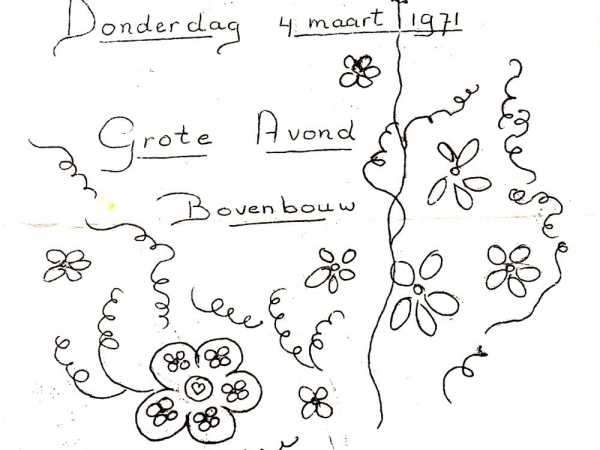 Donderdag 4 maart 1971
Grote Avond
Bovenbouw